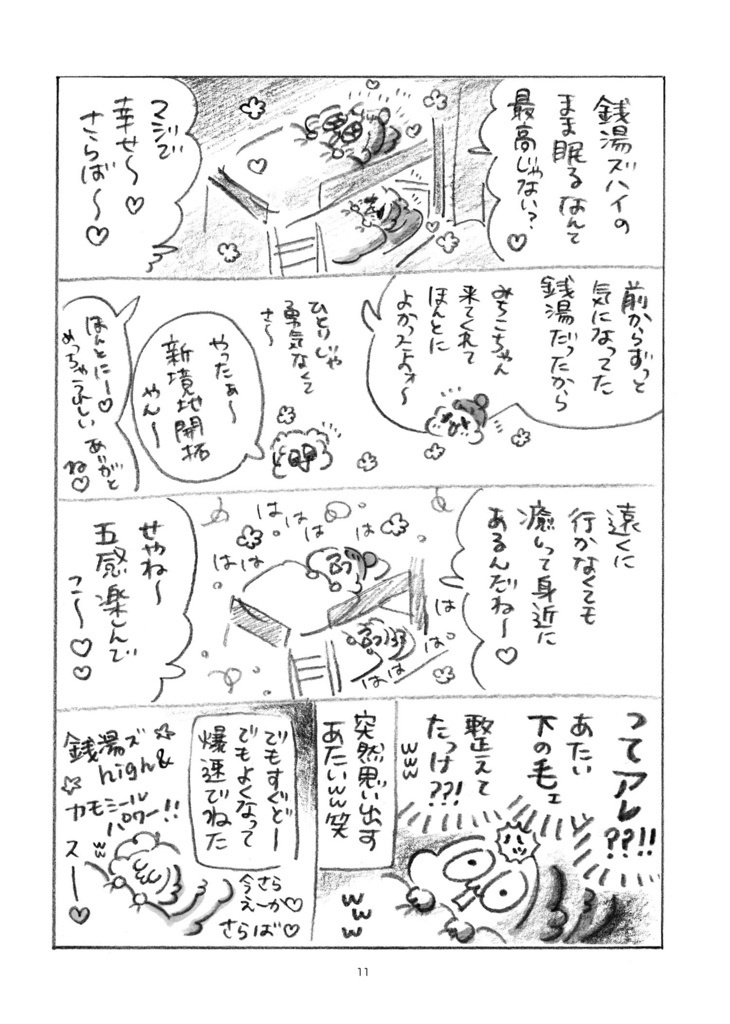 銭湯ズハイの
まま眠るなんて
最高じゃない?♡
マジで
幸せ〜♡
さらば〜♡
前からずっと
気になってた
銭湯だったから
みちこちゃん
来てくれて
ほんとに
よかったよォ〜
ひとりじゃ
勇気なくて
さ〜
やったぁ〜
新境地開拓
やん〜
ほんとにー♡
めっちゃうれしい
ありがと
ね♡
遠くに
行かなくても
癒しって身近に
あるんだね〜♡
はは
はは
はは
は
は
はは
せやね〜
五感楽しんで
こ〜♡♡
ってアレ??!!
あたい
下の毛ェ
整えて
たっけ??!
www
突然思い出す
あたいww笑
www
でもすぐどー
でもよくなって
爆速でねた
銭湯ズ
high&
カモミール
パワー!!
ww
スー♡
さら
今えーか♡
さらば♡
11